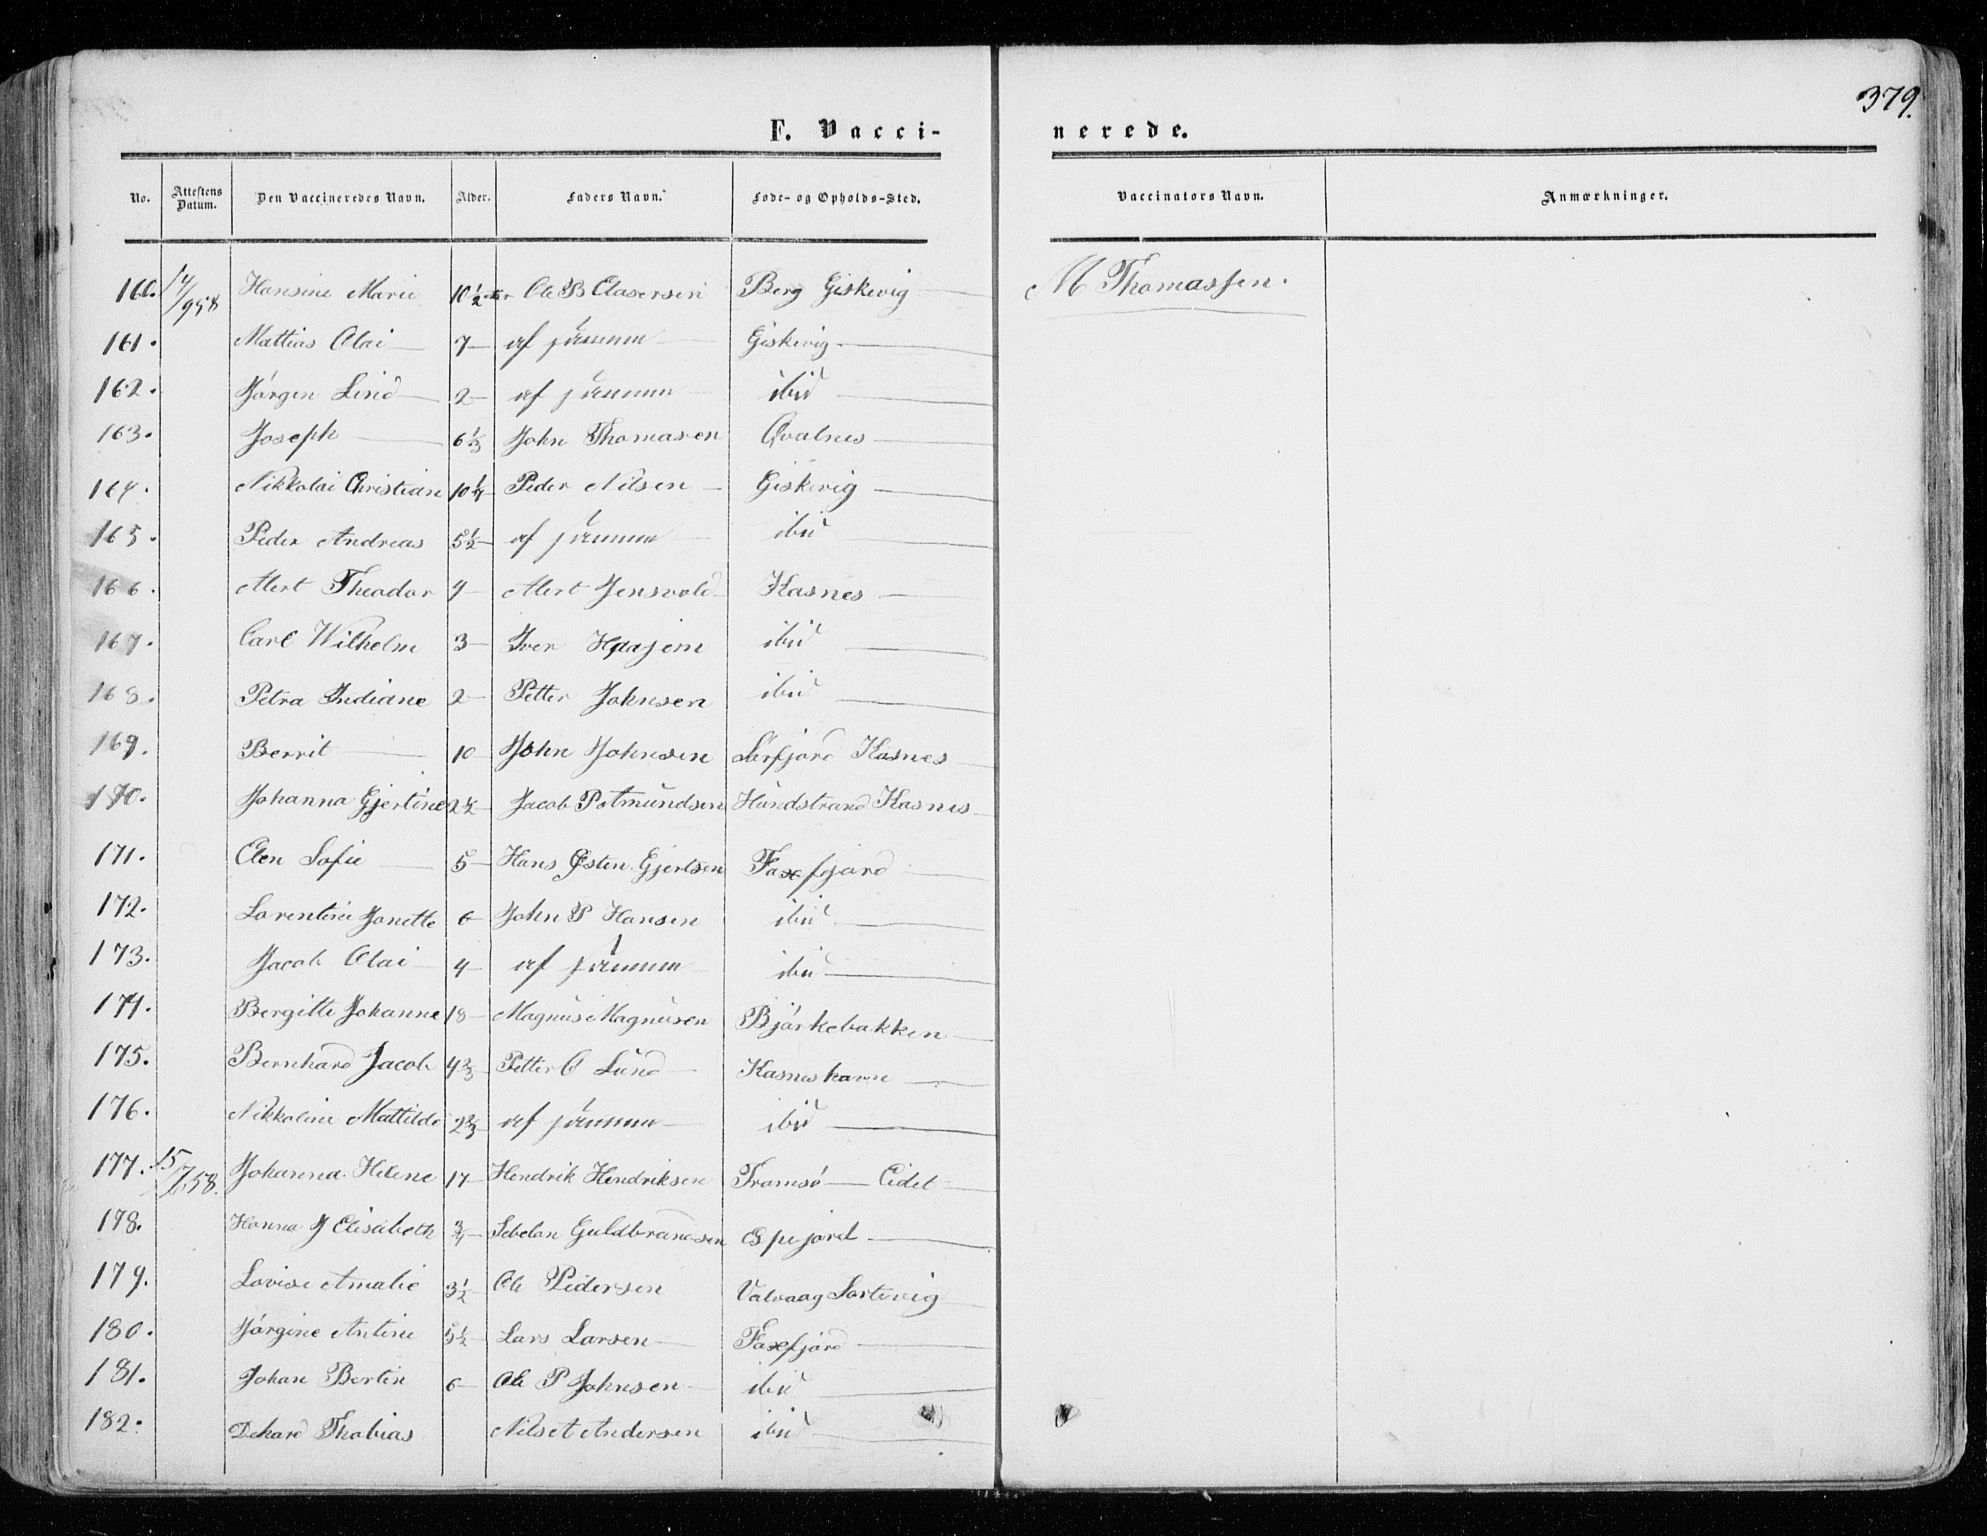 379.
F. Vacci-
nerede.
No. Attestens Datum. Den Vaccineredes Navn. Alder. Faders Navn. Føde- og Opholds-Sted. Vaccinators Navn. Anmærkninger.
160. 14/9 58 Hansine Marie 10 1/2 Ole B Elasersen Berg Giskevig M Thomassen.
161. Mattias Olai 7 af samme Giskevig
162. Jörgen Lind 2 af samme ibid
163. Joseph 6 1/3 John Thomasen Qvalnes
164. Nikkolai Christian 10 1/4 Peder Nilsen Giskevig
165. Peder Andreas 5 1/2 af samme ibid
166. Alert Theodor 4 Alert Jensvold Kasnes
167. Carl Wilhelm 3 Iver Haajem ibid
168. Petra Indiane 2 Petter Johnsen ibid
169. Berrit 10 John Johnsen Sørfjord Kasnes
170. Johanna Gjertine 2 1/2 Jacob Hundstrand Kasnes
171. Elen Sofie 5 Hans Østen Gjertsen Faxefjord
172. Lorentine Janette 6 John P Hansen ibid
173. Jacob Olai 4 af samme ibid
174. Bergitte Johanne 18 Magnus Magnusen Björkebakken
175. Bernhard Jacob 4 2/3 Petter O Lund Kasneshavn
176. Nikkoline Mattilde 2 2/3 af samme ibid
177. 15/ 58. Johanna Helene 17 Hendrik Hendriksen Tromsö Eidet
178. Hanna J Elisabeth 3/4 Guldbrandsen Espejord
179. Lovise Amalie 3 1/2 Ole Pedersen Valvaag Sortevig
180. Jörgine Antine 5 1/2 Lars Larsen Faxefjord
181. Johan Bertin 6 Ole P Johnsen ibid
182. Dehard Thobias Nils A Andersen ibid